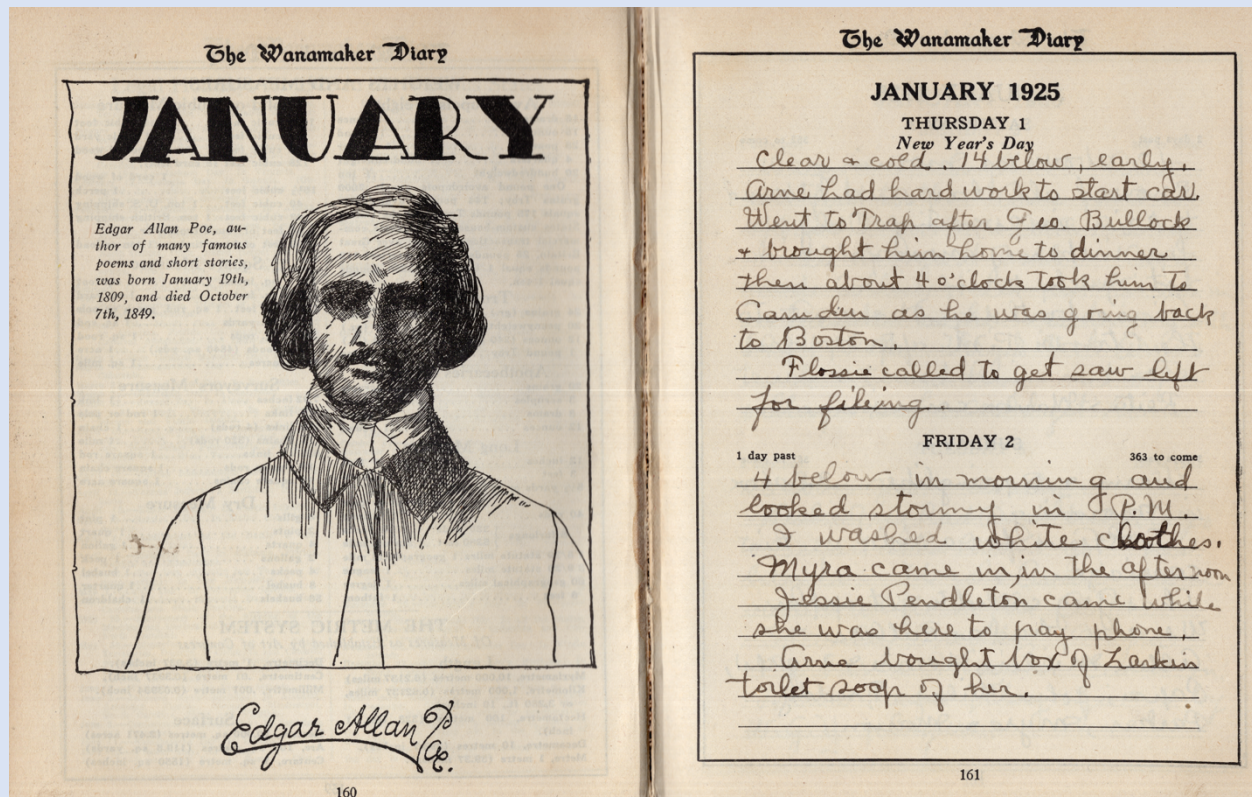 The Wanamaker Diary
JANUARY
Edgar Allan Poe, au-
thor of many famous
poems and short stories,
was born January 19th,
1809, and died October
7th, 1849.
Edgar Allan Poe.
160
The Wanamaker Diary
JANUARY 1925
THURSDAY 1
New Year's Day
Clear & cold. 14 below, early.
Arne had hard work to start car.
Went to Trap after Geo. Bullock
& brought him home to dinner
then about 4 o'clock took him to
Camden as he was going back
to Boston.
Flossie called to get saw left
for filing.
FRIDAY 2
1 day past 363 to come
4 below in morning and
looked stormy in P.M.
I washed white clothes.
Myra came in, in the afternoon
Jessie Pendleton came while
she was here to pay phone.
Arne bought box of Larkin
toilet soap of her.
161